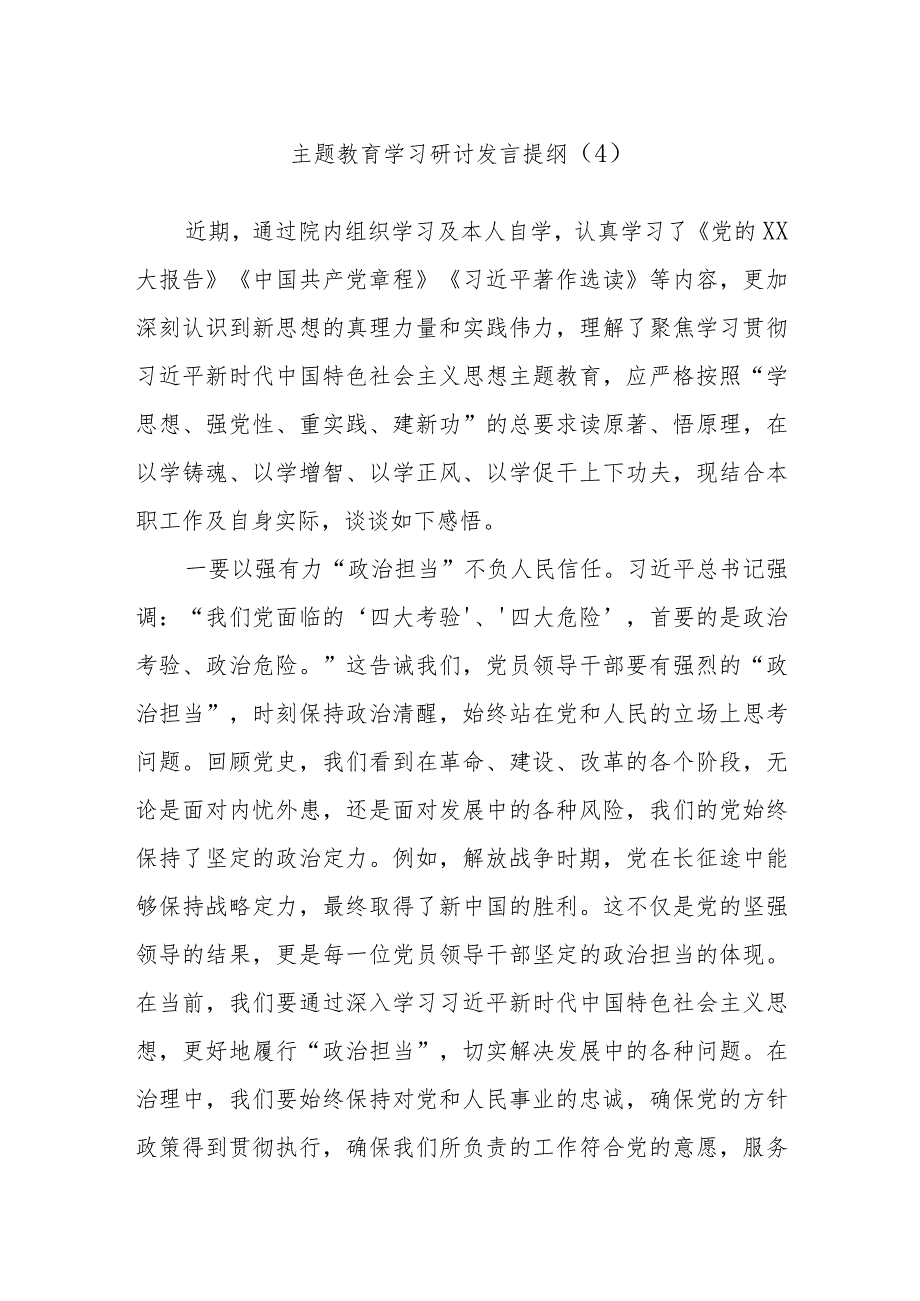 主题教育学习研讨发言提纲（4）
近期，通过院内组织学习及本人自学，认真学习了《党的XX
大报告》《中国共产党章程》《习近平著作选读》等内容，更加
深刻认识到新思想的真理力量和实践伟力，理解了聚焦学习贯彻
习近平新时代中国特色社会主义思想主题教育，应严格按照“学
思想、强党性、重实践、建新功”的总要求读原著、悟原理，在
以学铸魂、以学增智、以学正风、以学促干上下功夫，现结合本
职工作及自身实际，谈谈如下感悟。
一要以强有力“政治担当”不负人民信任。习近平总书记强
调：“我们党面临的‘四大考验'、'四大危险’，首要的是政治
考验、政治危险。”这告诫我们，党员领导干部要有强烈的“政
治担当”，时刻保持政治清醒，始终站在党和人民的立场上思考
问题。回顾党史，我们看到在革命、建设、改革的各个阶段，无
论是面对内忧外患，还是面对发展中的各种风险，我们的党始终
保持了坚定的政治定力。例如，解放战争时期，党在长征途中能
够保持战略定力，最终取得了新中国的胜利。这不仅是党的坚强
领导的结果，更是每一位党员领导干部坚定的政治担当的体现。
在当前，我们要通过深入学习习近平新时代中国特色社会主义思
想，更好地履行“政治担当”，切实解决发展中的各种问题。在
治理中，我们要始终保持对党和人民事业的忠诚，确保党的方针
政策得到贯彻执行，确保我们所负责的工作符合党的意愿，服务